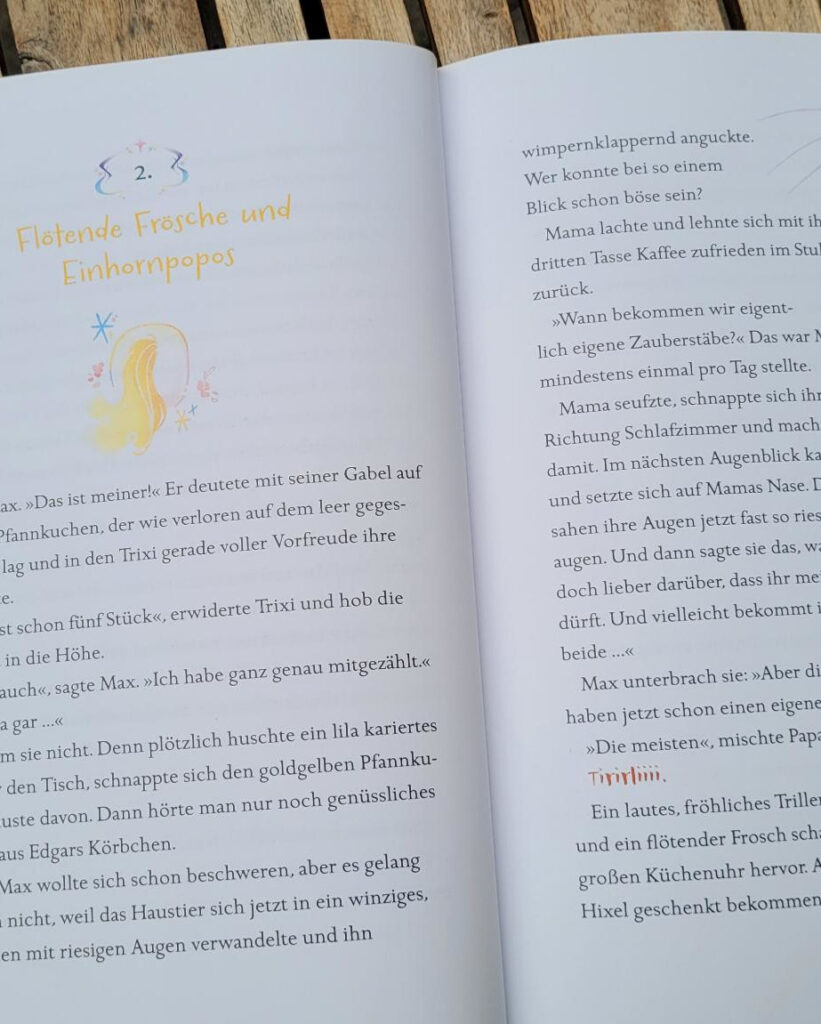 2.
Flötende Frösche und
Einhornpopos
ax. »Das ist meiner!« Er deutete mit seiner Gabel auf
Pfannkuchen, der wie verloren auf dem leer geges-
lag und in den Trixi gerade voller Vorfreude ihre
e.
st schon fünf Stück«, erwiderte Trixi und hob die
in die Höhe.
auch«, sagte Max. »Ich habe ganz genau mitgezählt.«
a gar ...«
m sie nicht. Denn plötzlich huschte ein lila kariertes
den Tisch, schnappte sich den goldgelben Pfannku-
uste davon. Dann hörte man nur noch genüssliches
aus Edgars Körbchen.
Max wollte sich schon beschweren, aber es gelang
nicht, weil das Haustier sich jetzt in ein winziges,
en mit riesigen Augen verwandelte und ihn
wimpernklappernd anguckte.
Wer konnte bei so einem
Blick schon böse sein?
Mama lachte und lehnte sich mit ih
dritten Tasse Kaffee zufrieden im Stuh
zurück.
»Wann bekommen wir eigent-
lich eigene Zauberstäbe?« Das war M
mindestens einmal pro Tag stellte.
Mama seufzte, schnappte sich ihr
Richtung Schlafzimmer und mach
damit. Im nächsten Augenblick ka
und setzte sich auf Mamas Nase. D
sahen ihre Augen jetzt fast so ries
augen. Und dann sagte sie das, wa
doch lieber darüber, dass ihr me
dürft. Und vielleicht bekommt i
beide ...«
Max unterbrach sie: »Aber di
haben jetzt schon einen eigene
»Die meisten«, mischte Papa
Tirirliiii.
Ein lautes, fröhliches Triller
und ein flötender Frosch scha
großen Küchenuhr hervor. A
Hixel geschenkt bekommen